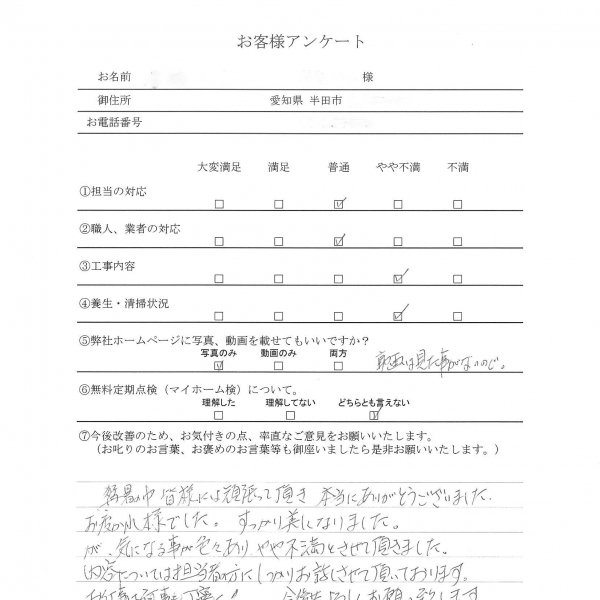 お客様アンケート
お名前 様
御住所 愛知県 半田市
お電話番号
大変満足 満足 普通 やや不満 不満
①担当の対応 □ □ ☑ □ □
②職人、業者の対応 □ □ ☑ □ □
③工事内容 □ □ □ ☑ □
④養生・清掃状況 □ □ □ ☑ □
⑤弊社ホームページに写真、動画を載せてもいいですか？
写真のみ 動画のみ 両方
☑ □ □ 動画は見た事がないので。
⑥無料定期点検（マイホーム検）について。
理解した 理解してない どちらとも言えない
□ □ ☑
⑦今後改善のため、お気付きの点、率直なご意見をお願いいたします。
（お叱りのお言葉、お褒めのお言葉等も御座いましたら是非お願いいたします。）
猛暑の中 皆様には頑張って頂き 本当にありがとうございました。
お疲れ様でした。 すっかり美しくなりました。
が、気になる事が色々あり やや不満とさせて頂きました。
内容については担当者の方にしっかりお話しさせて頂いております。
お願い致します